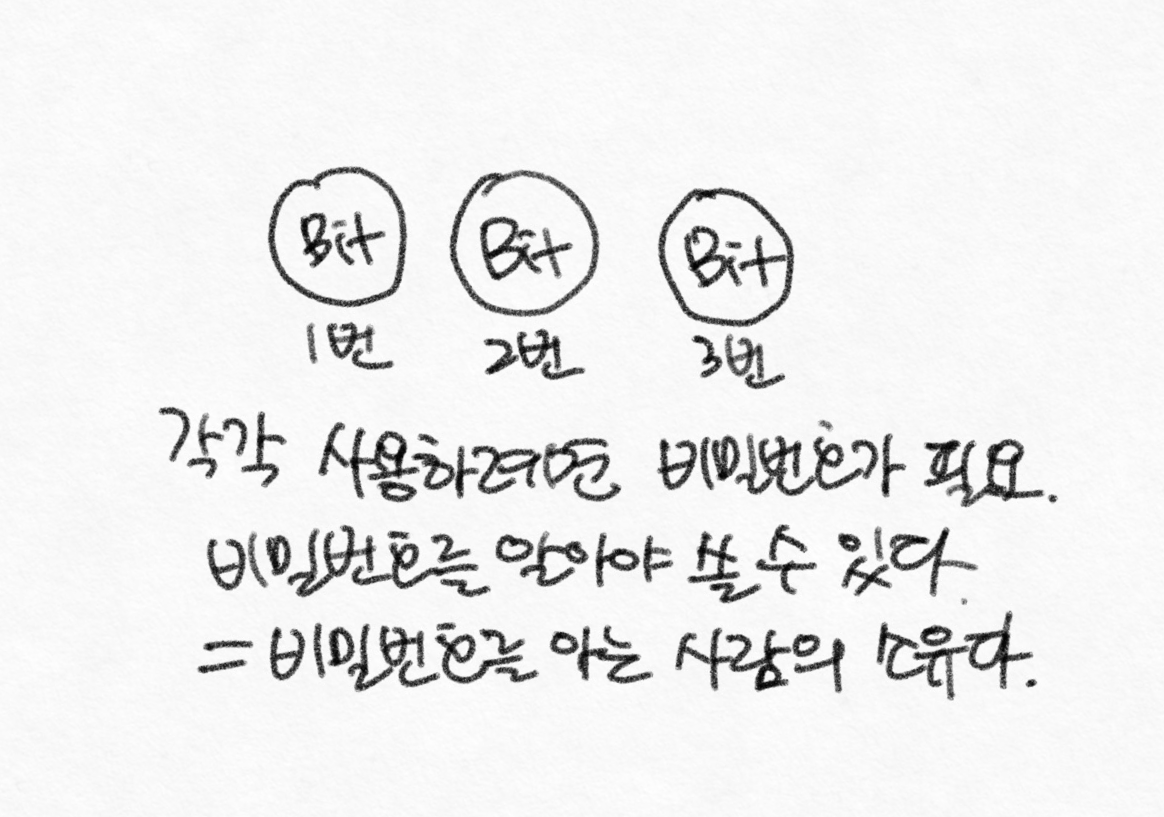 Bit Bit Bit
1번 2번 3번
각각 사용하려면 비밀번호가 필요.
비밀번호를 알아야 쓸 수 있다.
= 비밀번호를 아는 사람의 소유다.